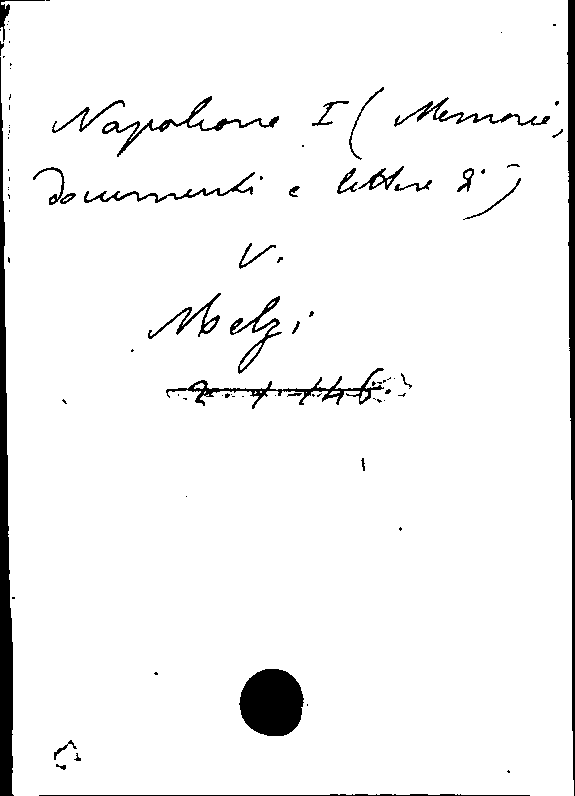 Napoleone I (Memorie,
documenti e lettere di)
V.
Melzi